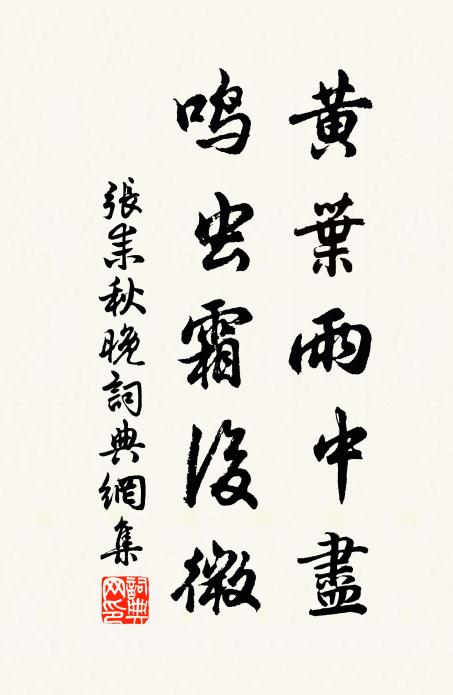 黃葉雨中盡
鳴虫霜後微
張耒秋晚詞典網集
詞典网印